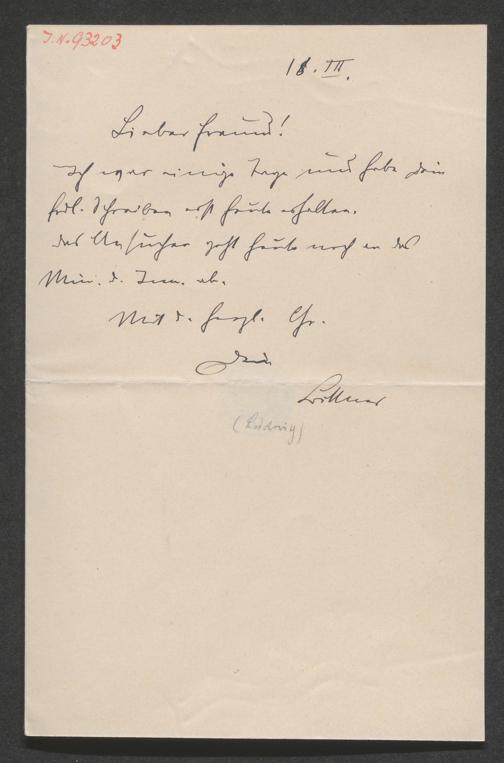 J.N. 93203
18. III.
Lieber Freund!
Ich war einige Tage und habe Dein
frdl. Schreiben erst heute erhalten.
Das Ansuchen geht heute noch an das
Min. d. Inn. ab.
Mit d. herzl. Gr.
Dein
Bittner
(Ludwig)